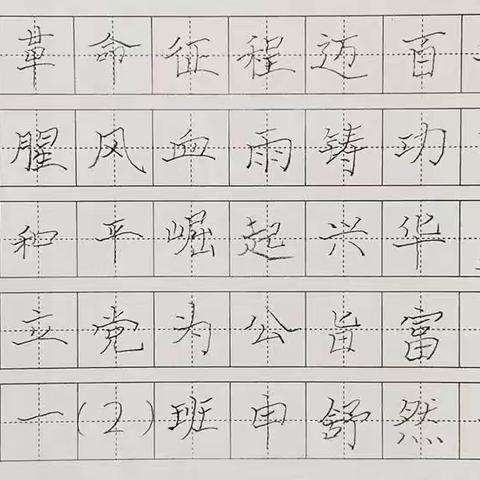 革命征程迈百
腥风血雨铸功
和平崛起兴华
立党为公旨富
一(2)班申舒然